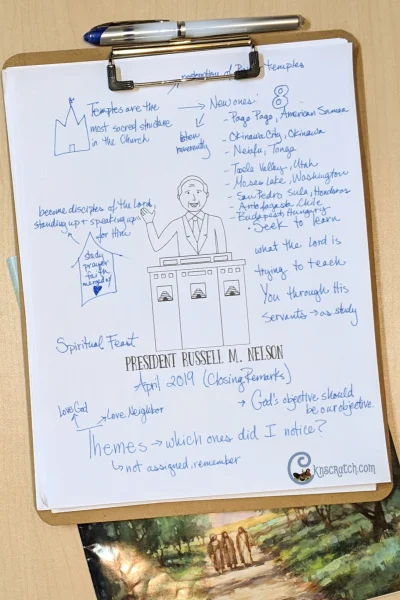 restoration of Pioneer temples
Temples are the
most sacred structure
in the Church
→ New ones: 8
listen
reverently
- Pago Pago, American Samoa
- Okinawa City, Okinawa
- Neiafu, Tonga
- Tooele Valley, Utah
- Moses Lake, Washington
- San Pedro Sula, Honduras
- Antofagasta, Chile
- Budapest, Hungry
• Seek to learn
what the Lord is
trying to teach
You through His
servants → as study
become disciples of the Lord,
standing up + speaking up
for Him
study
prayer
faith
Spiritual Feast
PRESIDENT RUSSELL M. NELSON
April 2019 (Closing Remarks)
Love God
Love Neighbor
→ God's objective should
be our objective.
Themes → which ones did I notice?
↳ not assigned, remember
cknscratch.com